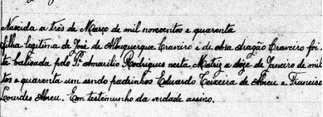 Nascida a três de Março de mil novecentos e quarenta
filha legitima de José de Albuquerque Craveiro e de Aragão Craveiro foi
balisada pelo Pe. Amarilio Rodrigues nesta Matriz a doze de Janeiro de mil
tos e quarenta um sendo padrinhos Eduardo Teixeira de Abreu e Francisc
Lourdes Abreu. Em testemunho da verdade assino.